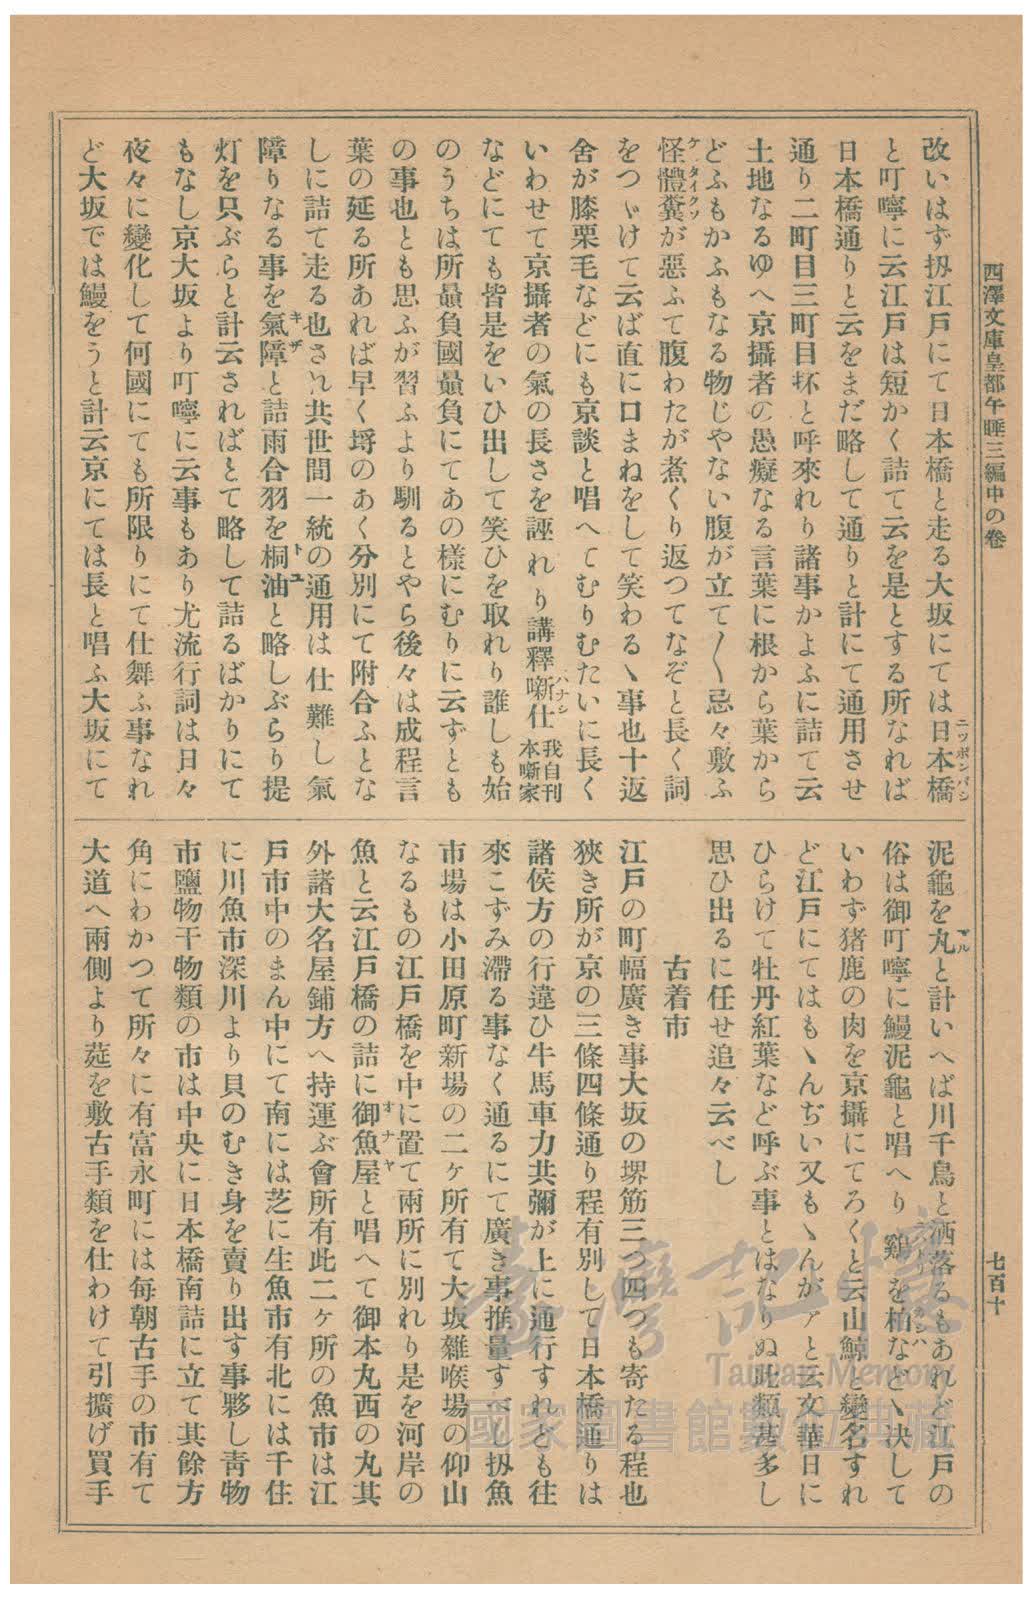 西澤文庫皇都午睡三編中の卷
七百十
改いはず扨江戸にて日本橋と走る大坂にては日本橋
ニツポンバシ
と叮嚀に云江戸は短かく詰て云を是とする所なれば
日本橋通りと云をまだ略して通りと計にて通用させ
通り二町目三町目抔と呼來れり諸事かよふに詰て云
土地なるゆへ京攝者の愚癡なる言葉に根から葉から
どふもかふもなる物じやない腹が立て〳〵忌々敷ふ
怪體糞が惡ふて腹わたが煮くり返つてなぞと長く詞
ケタイクソ
をつゞけて云ば直に口まねをして笑わるゝ事也十返
舍が膝栗毛などにも京談と唱へてむりむたいに長く
いわせて京攝者の氣の長さを誣れり講釋噺仕
ハナシ
我自刊
本噺家
などにても皆是をいひ出して笑ひを取れり誰しも始
のうちは所贔負國贔負にてあの樣にむりに云ずとも
の事也とも思ふが習ふより馴るとやら後々は成程言
葉の延る所あれば早く埒のあく分別にて附合ふとな
しに詰て走る也され共世間一統の通用は仕難し氣
障りなる事を氣障と詰雨合羽を桐油と略しぶらり提
キザ
トユ
灯を只ぶらと計云さればとて略して詰るばかりにて
もなし京大坂より叮嚀に云事もあり尤流行詞は日々
夜々に變化して何國にても所限りにて仕舞ふ事なれ
ど大坂では鰻をうと計云京にては長と唱ふ大坂にて
泥龜を丸と計いへば川千鳥と洒落るもあれど江戸の
マル
俗は御叮嚀に鰻泥龜と唱へり鷄を柏などゝ决して
カシハ
いわず猪鹿の肉を京攝にてろくと云山鯨と變名すれ
ど江戸にてはもゝんぢい又もゝんがァと云文華日に
ひらけて牡丹紅葉など呼ぶ事とはなりぬ此類甚多し
思ひ出るに任せ追々云べし
古着市
江戸の町幅廣き事大坂の堺筋三つ四つも寄たる程也
狹き所が京の三條四條通り程有別して日本橋通りは
諸侯方の行違ひ牛馬車力共彌が上に通行すれども往
來こずみ滯る事なく通るにて廣き事推量すべし扨魚
市場は小田原町新場の二ヶ所有て大坂雜喉場の仰山
なるもの江戸橋を中に置て兩所に別れり是を河岸の
魚と云江戸橋の詰に御魚屋と唱へて御本丸西の丸其
オナヤ
外諸大名屋鋪方へ持運ぶ會所有此二ヶ所の魚市は江
戸市中のまん中にて南には芝に生魚市有北には千住
に川魚市深川より貝のむき身を賣り出す事夥し靑物
市鹽物干物類の市は中央に日本橋南詰に立て其餘方
角にわかつて所々に有富永町には毎朝古手の市有て
大道へ兩側より莚を敷古手類を仕わけて引擴げ買手
臺灣記憶
Taiwan Memory
國家圖書館數位典藏